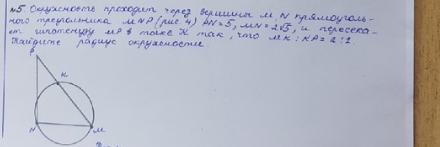 №5 Окружность проходит через вершины M, N прямоуголь-
ного треугольника MNP (рис 4), PN=5, MN=2√5, и пересека-
ет гипотенузу MP в точке K так, что MK:KP=2:1.
Найдите радиус окружности.
P
K
N
M